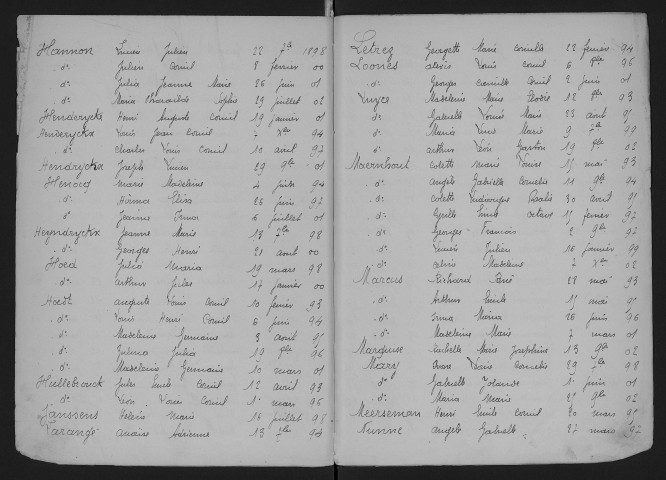 Hannon Lucien Julien 22 7bre 1898
d° Julien Cornil 8 fevrier 00
d° Julia Jeanne Marie 26 juin 01
d° Maria Pharaïlde Sophie 29 juillet 02
Henderyckx Henri Auguste Cornil 19 janvier 01
Henderyckx Louis Jean Cornil 94
d° Charles Louis Cornil 10 avril 97
Hendryckx Joseph Lucien 29 9bre 01
Hencog Marie Madeleine 4 juin 94
d° Elisa 26 juin 97
d° Jeanne Irma 6 juillet 01
Heyndryckx Jeanne Marie 13 7bre 98
d° Georges Henri 21 août 00
Hoed Julia Maria 19 mars 98
d° Arthur Jules 17 janvier 00
Hoedt Auguste Louis Cornil 10 fevrier 93
d° Louis Henri Cornil 6 juin 94
d° Madeleine Germaine 3 août 95
d° Julma Julia 19 96
d° Madeleine Germaine 10 mars 01
Hullebrock Jules Emile Cornil 12 avril 93
d° Léon Louis Cornil 1er mars 96
Janssens Hélène Marie 16 juillet 98
Farange Anaïse Adrienne 13 7bre 94
Letrez Georgette Marie Cornélie 22 fevrier 94
Loones Alexis Louis Cornil 6 96
d° Georges Camille Cornil 2 juin 01
Luyex Madeleine Marie 12 93
d° Gabrielle Louise Marie 23 août 95
d° Maria Marie 9 7bre 99
d° Arthur Léon Gaston 19 02
Maernhout Colette Marie Louise 15 mai 93
d° Angèle Gabrielle Cornélie 11 9bre 94
d° Colette Rosalie 30 avril 95
d° Emile Octave 15 fevrier 97
d° Georges François 2 9bre 97
d° Lucien Julien 16 janvier 99
d° Madeleine 02
Marcus Richard René 28 mai 93
d° Arthur Emile 15 mai 95
d° Irma Maria 26 juin 96
d° Madeleine Marie 7 mars 01
Marquise Rachelle Marie Josephine 13 9bre 02
Mary Louis Cornélie 29 7bre 98
d° Gabrielle Yolande 1er juin 01
d° Maria Marie 21 9bre 02
Meerseman Henri Emile Cornil 20 mars 95
Nunne Angèle Gabrielle 27 mars 97